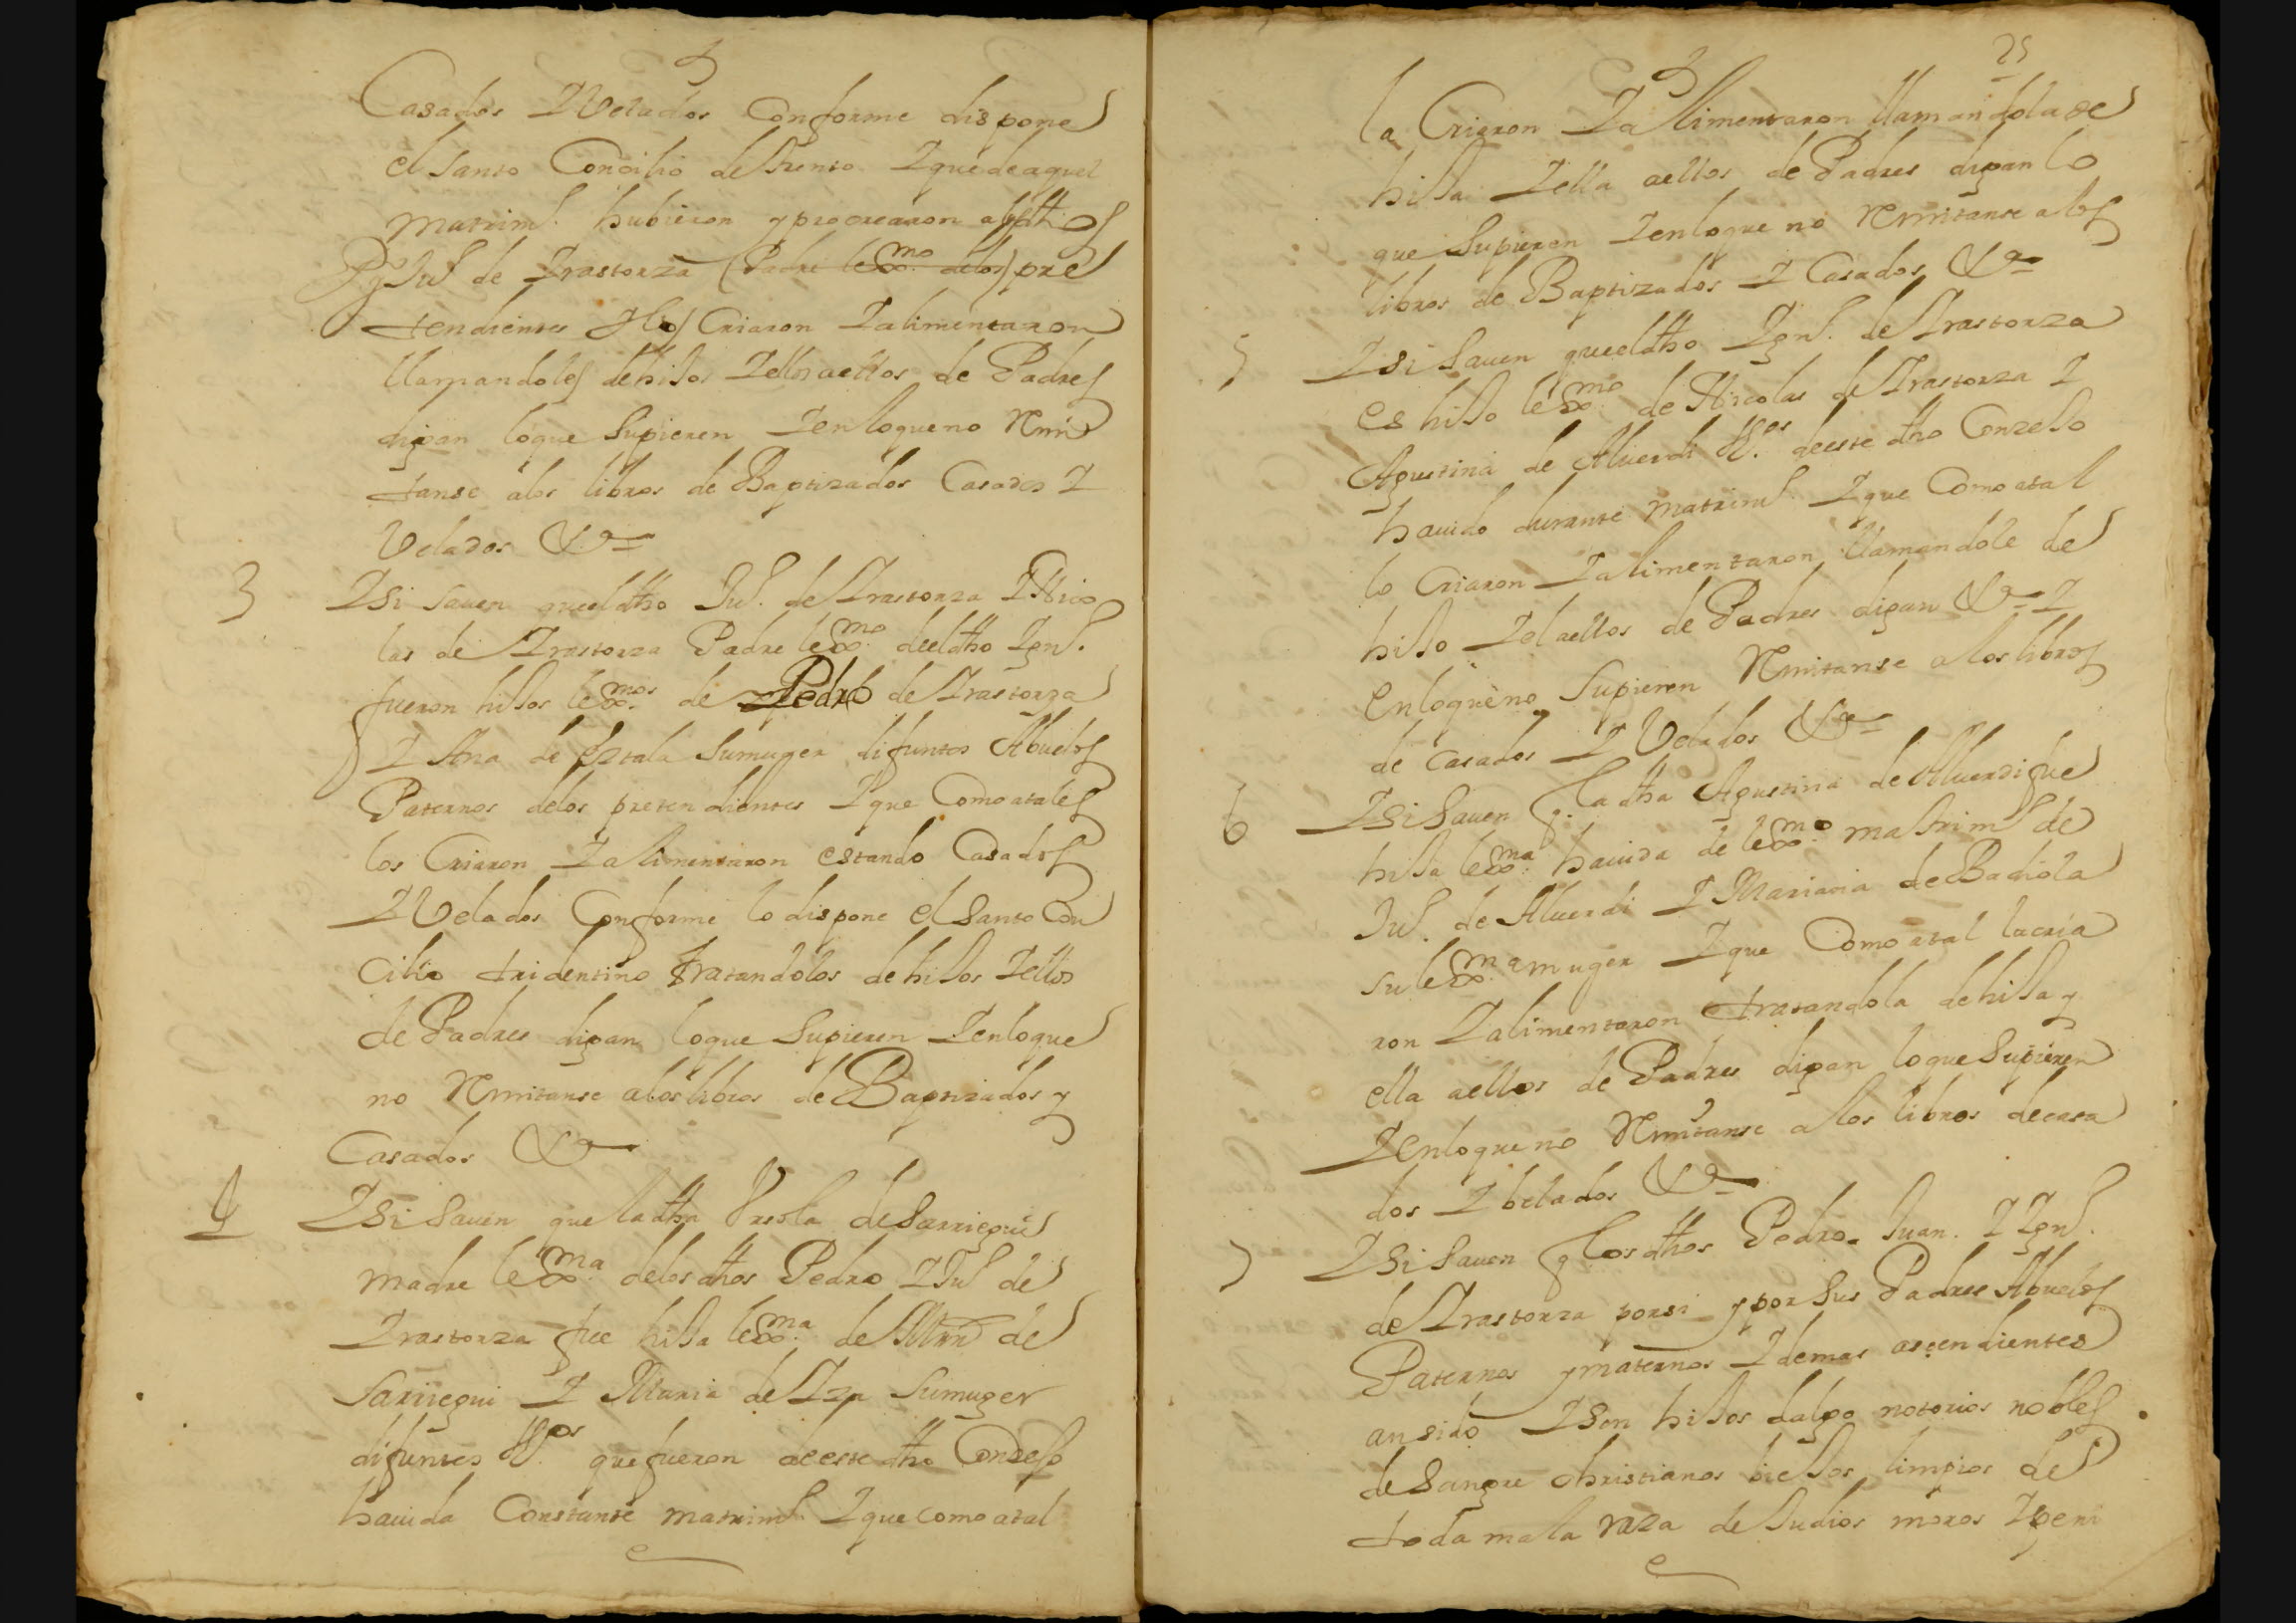 Casados I Velados Conforme dispone
el santo Concilio de Trento I que de aquel
matrim.º hubieron y procrearon a los dhos
Pº I Juº de Irastorza (Padre lexmo delos) pre
tendientes I los Criaron I alimentaron
llamandoles de hijos I ellos aellos de Padres
digan loque supieren I en loqueno Remi
tanse alos libros de Baptizados Casados I
Velados &ª
3 I si saven queeldho Juº. de Irastorza I Nico
las de Irastorza Padre lexmo. deeldho Ignº.
fueron hijos lexmos. de Pedro de Irastorza
I Ana de Eztala sumuger difuntos Abuelos
Paternos delos pretendientes I que Comoatales
los Criaron I alimentaron estando Casados
I Velados Conforme lo dispone el santo Con
cilio tridentino tratandolos de hijos I ellos
de Padres digan loque supieren I enloque
no Remitanse alos libros de Baptizados y
Casados &ª
4 I si saven que la dha Ursola de Sarriegui
madre lexma. delos dhos Pedro I Juº de
Irastorza fue hija lexma. de Mrn de
Sarriegui I Maria de Iza sumuger
difuntos Vºs. que fueron de este dho Conzejo
havida Constante matrimº. I que como atal
25
la Criaron I alimentaron llamandola de
hija I ella aellos de Padres digan lo
que supieren I enloque no Remitanse a los
libros de Baptizados I Casados &ª
5 I si saven queeldho Ignº. de Irastorza
es hijo lexmo. de Nicolas de Irastorza I
Agustina de Alverdi Vºs. deeste dho Conzejo
havido durante matrimº. I que Como atal
lo Criaron I alimentaron llamandole de
hijo I el aellos de Padres digan &ª I
enloqueno supieren Remitanse a los libros
de Casados I Velados &ª
6 I si saven q. la dha Agustina de Alverdi fue
hija lexma. havida de lexmo. matrimº de
Juº. de Alverdi I Mariana de Badiola
su lexma. muger I que Como atal lacria
ron I alimentaron tratandola de hija y
ella aellos de Padres digan loque supieren
I enloqueno Remitanse a los libros decasa
dos I belados &ª
7 I si saven q los dhos Pedro. Juan. I Ignº.
de Irastorza porsi y por sus Padres Abuelos
Paternos y maternos I demas ascendientes
an sido I son hijos dalgo notorios nobles
de sangre christianos biejos limpios de
toda mala raza de Judios moros I peni